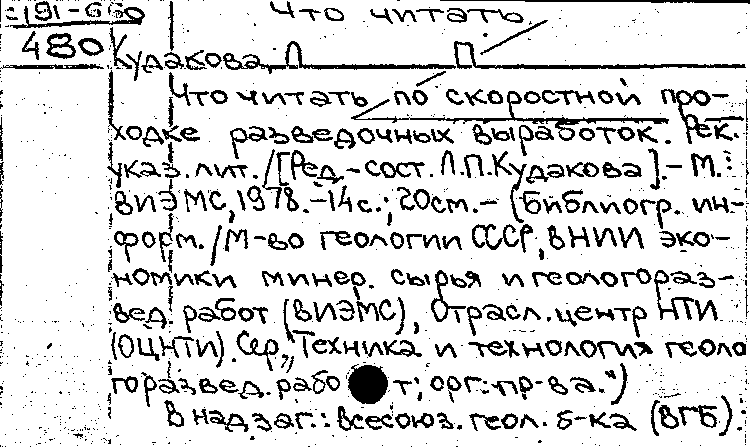 С191-660 Что читать
480 Кудакова, Л П
Что читать по скоростной про-
ходке разведочных выработок. Рек.
указ. лит. / [Ред.-сост. Л.П. Кудакова]. - М.:
ВИЭМС, 1978. - 14с.; 20см. - (Библиогр. ин-
форм. / М-во геологии СССР, ВНИИ эко-
номики минер. сырья и геологораз-
вед. работ (ВИЭМС), Отрасл. центр НТИ
(ОЦНТИ). Сер. „Техника и технология геоло
горазвед. работ; орг. пр-ва.")
В надзаг.: Всесоюз. геол. б-ка (ВГБ).